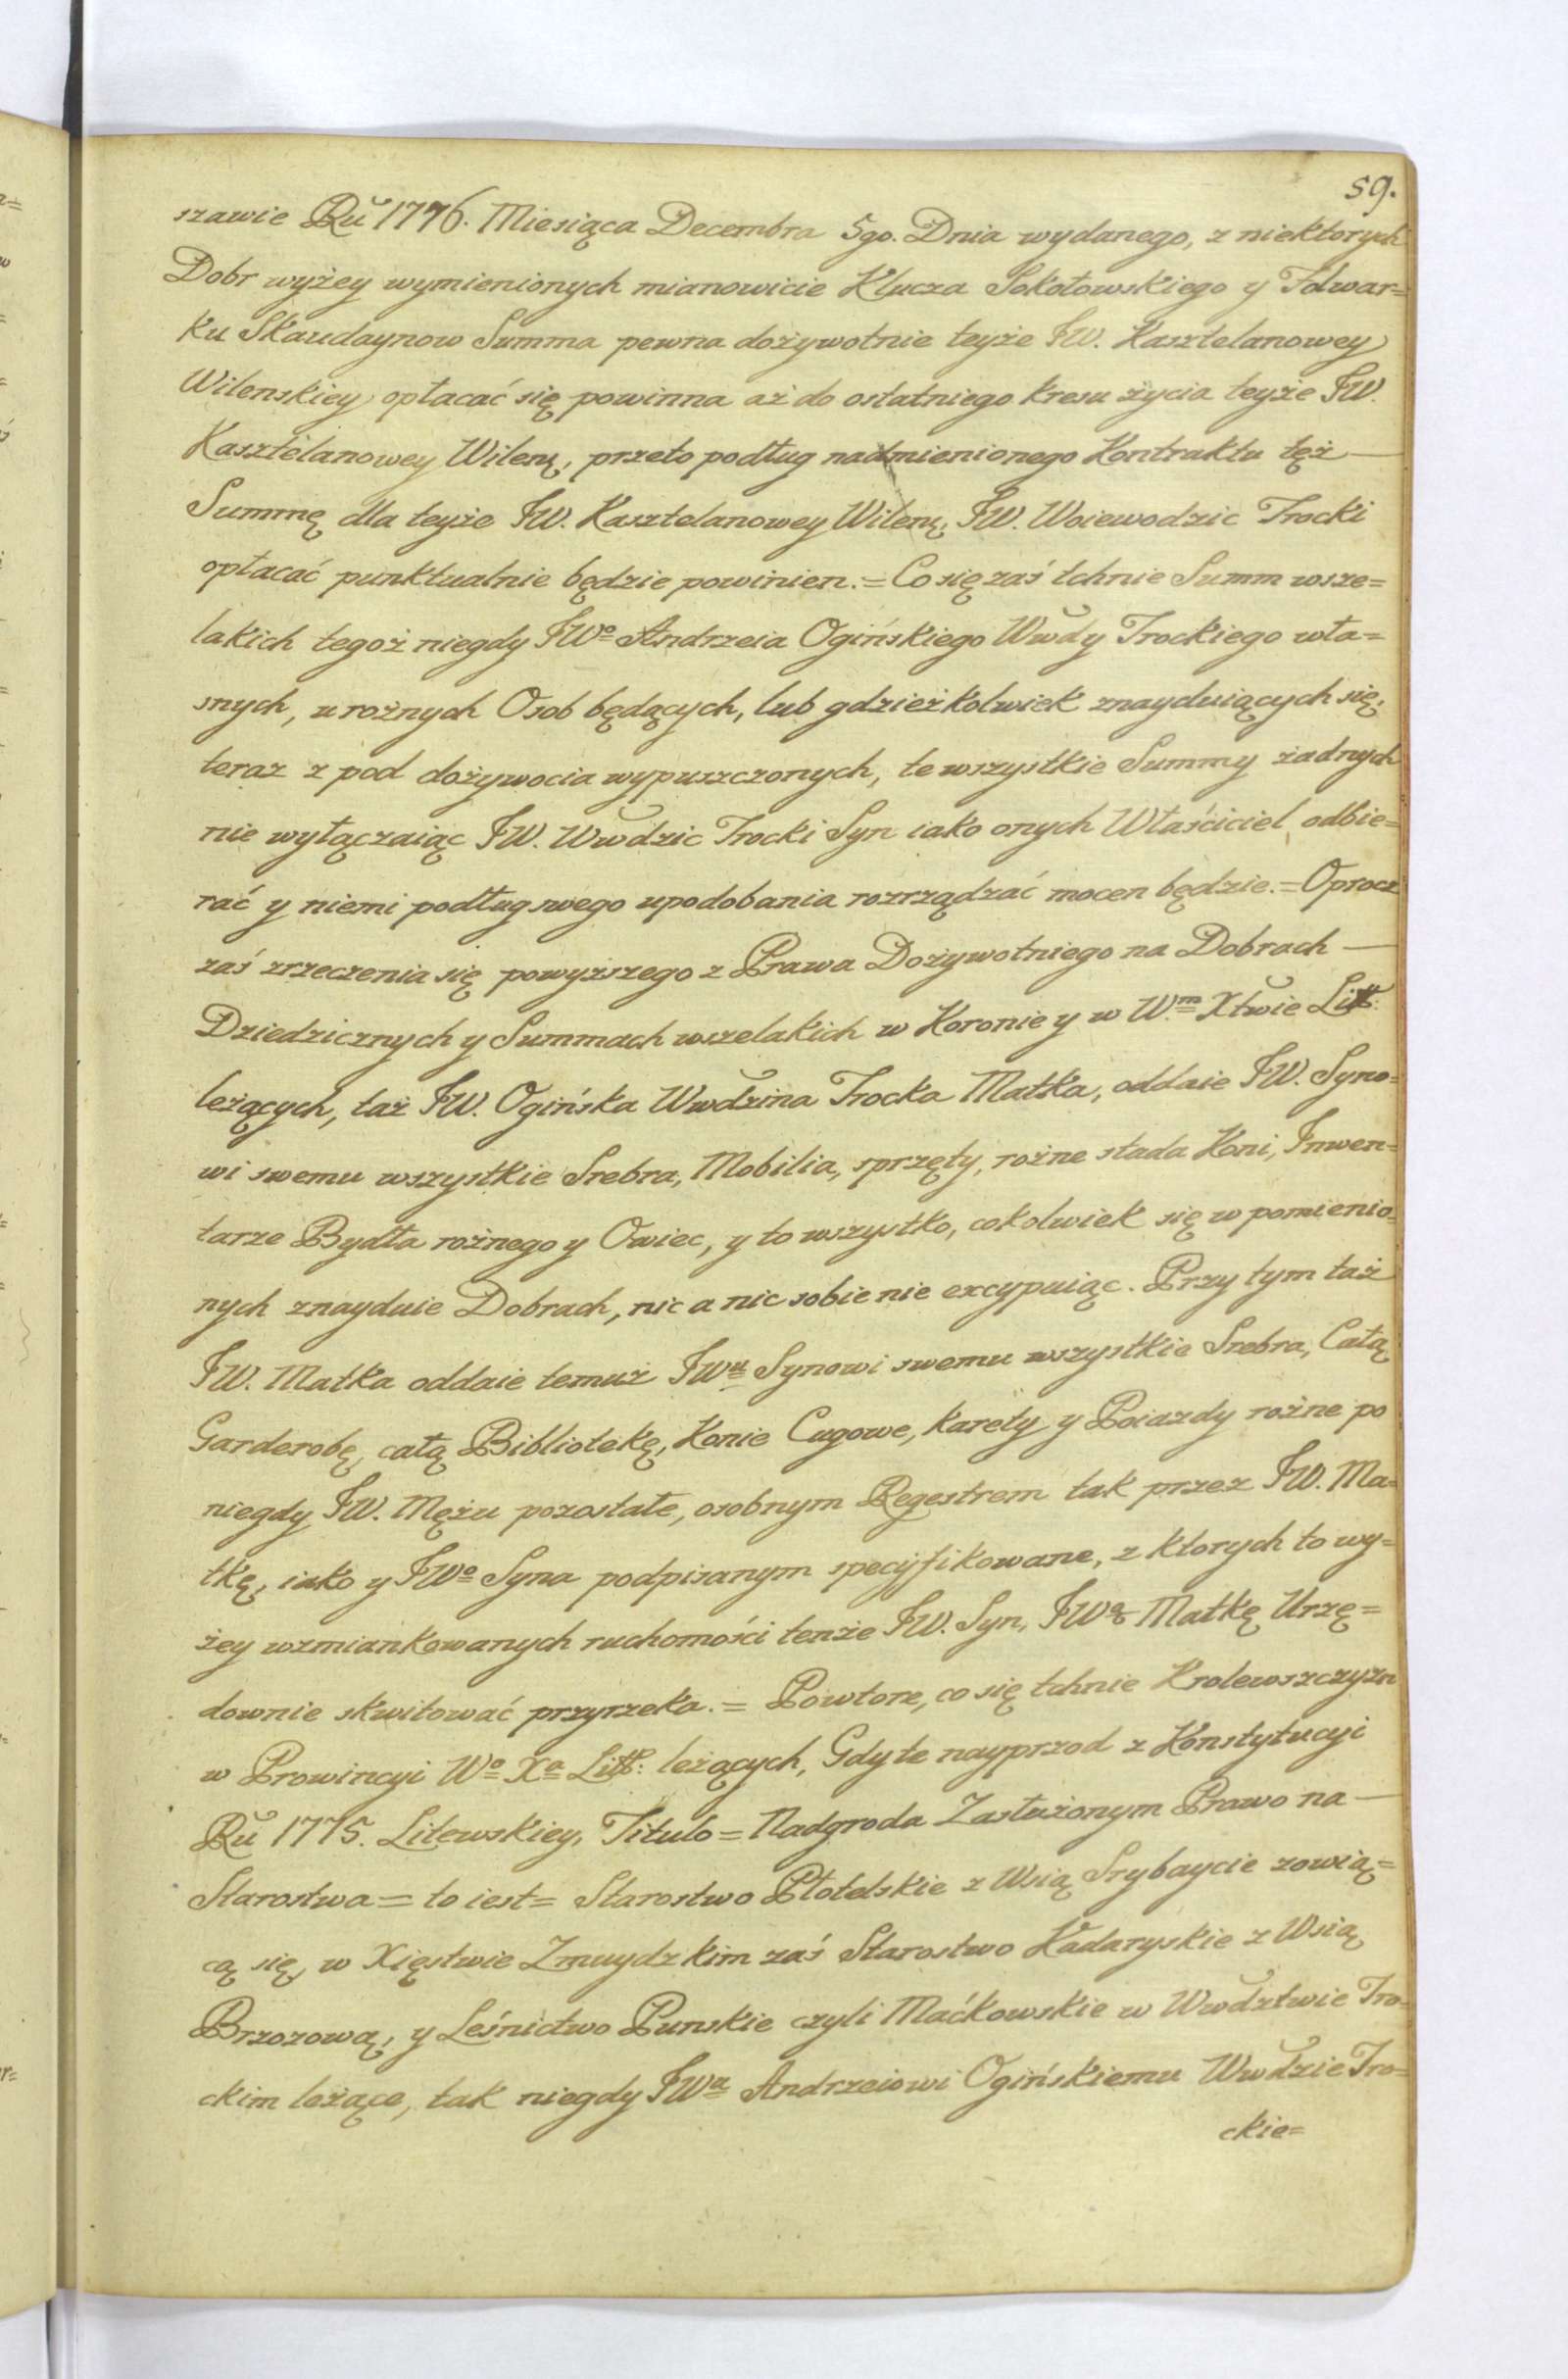 59.
szawie Rŭ 1776. Miesiąca Decembra 5go. Dnia wydanego, z niektorych
Dobr wyżey wymienionych mianowicie Klucza Sokołowskiego y Folwar=
ku Skaudaynow Summa pewna dożywotnie teyże JW. Kasztelanowey
Wilenskiey opłacać się powinna aż do ostatniego kresu życia teyże JW.
Kasztelanowey Wilenſ: przeto podług nadmienionego Kontraktu tęż —
Summę dla teyże JW. Kasztelanowey Wilenſ: JW. Woiewodzic Trocki
opłacać punktualnie będzie powinien. = Co się zaś tchnie Summ wsze=
lakich tegoż niegdy JWº Andrzeia Ogińskiego Wwdy Trockiego wła=
snych, u rożnych Osob będących, lub gdzieżkolwiek znayduiących się,
teraz z pod dożywocia wypuszczonych, te wszystkie Summy żadnych
nie wyłączaiąc JW. Wwdzic Trocki Syn iako onych Właściciel odbie=
rać y niemi podług swego upodobania rozrządzać mocen będzie. = Oprocz
zaś zrzeczenia się powyższego z Prawa Dożywotniego na Dobrach —
Dziedzicznych y Summach wszelakich w Koronie y w W.m Xtwie Litt:
leżących, taż JW. Ogińska Wwdzina Trocka Matka, oddaie JW. Syno=
wi swemu wszystkie Srebra, Mobilia, sprzęty, rożne stada Koni, Inwen=
tarze Bydła rożnego y Owiec, y to wszystko, cokolwiek się w pomienio=
nych znayduie Dobrach, nic a nic sobie nie excypuiąc. Przy tym taż
JW. Matka oddaie temuż JWu Synowi swemu wszystkie Srebra, Całą
Garderobę, całą Bibliotekę, Konie Cugowe, karety y Poiazdy rożne po
niegdy JW. Mężu pozostałe, osobnym Regestrem tak przez JW. Ma=
tkę, iako y JWº Syna podpisanym specyfikowane, z ktorych to wy=
żey wzmiankowanych ruchomości tenże JW. Syn, JWą Matkę Urzę=
downie skwitować przyrzeka. = Powtore, co się tchnie Krolewszczyzn
w Prowincyi Wº Xa Litt: leżących, Gdy te nayprzod z Konstytucyi
Rŭ 1775. Litewskiey, Titulo = Nadgroda Zasłużonym Prawo na —
Starostwa = to iest = Starostwo Płotelskie z Wsią Srybaycie zowią=
cą się, w Xięstwie Zmuydzkim zaś Starostwo Kadaryskie z Wsią
Brzozową, y Leśnictwo Punskie czyli Maćkowskie w Wwdztwie Tro=
ckim leżące, tak niegdy JWu Andrzeiowi Ogińskiemu Wwdzie Tro=
ckie=